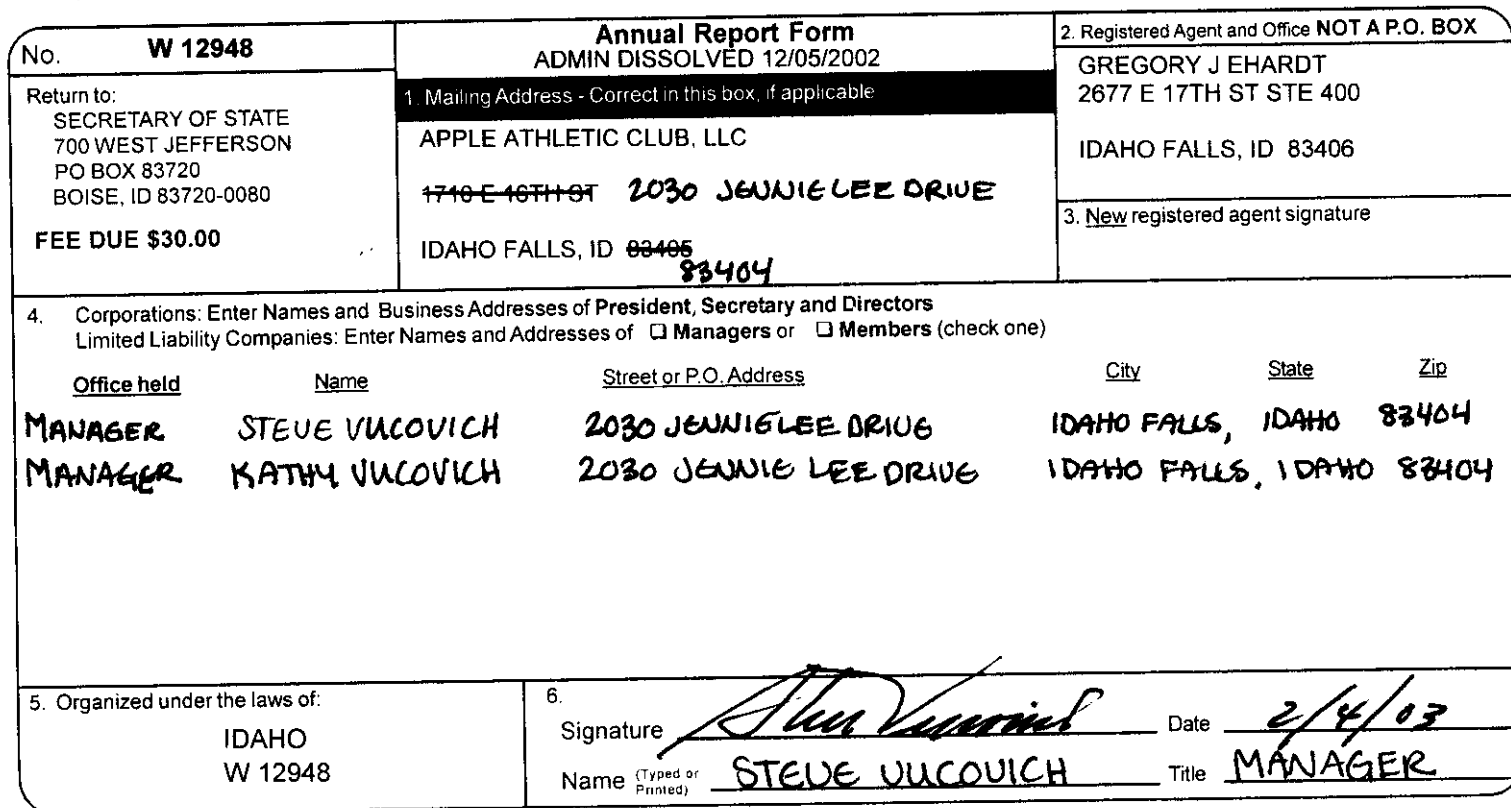 No. W 12948
Return to:
SECRETARY OF STATE
700 WEST JEFFERSON
PO BOX 83720
BOISE, ID 83720-0080
FEE DUE $30.00
Annual Report Form
ADMIN DISSOLVED 12/05/2002
1. Mailing Address - Correct in this box, if applicable
APPLE ATHLETIC CLUB, LLC
1710 E 16TH ST 2030 JENNIE LEE DRIVE
IDAHO FALLS, ID 83405
83404
2. Registered Agent and Office NOT A P.O. BOX
GREGORY J EHARDT
2677 E 17TH ST STE 400
IDAHO FALLS, ID 83406
3. New registered agent signature
4. Corporations: Enter Names and Business Addresses of President, Secretary and Directors
Limited Liability Companies: Enter Names and Addresses of ❑ Managers or ❑ Members (check one)
Office held Name Street or P.O. Address City State Zip
MANAGER STEVE VUCOVICH 2030 JENNIE LEE DRIVE IDAHO FALLS, IDAHO 83404
MANAGER KATHY VUCOVICH 2030 JENNIE LEE DRIVE IDAHO FALLS, IDAHO 83404
5. Organized under the laws of:
IDAHO
W 12948
6.
Signature Steve Vucovich Date 2/4/03
Name (Typed or Printed) STEVE VUCOVICH Title MANAGER